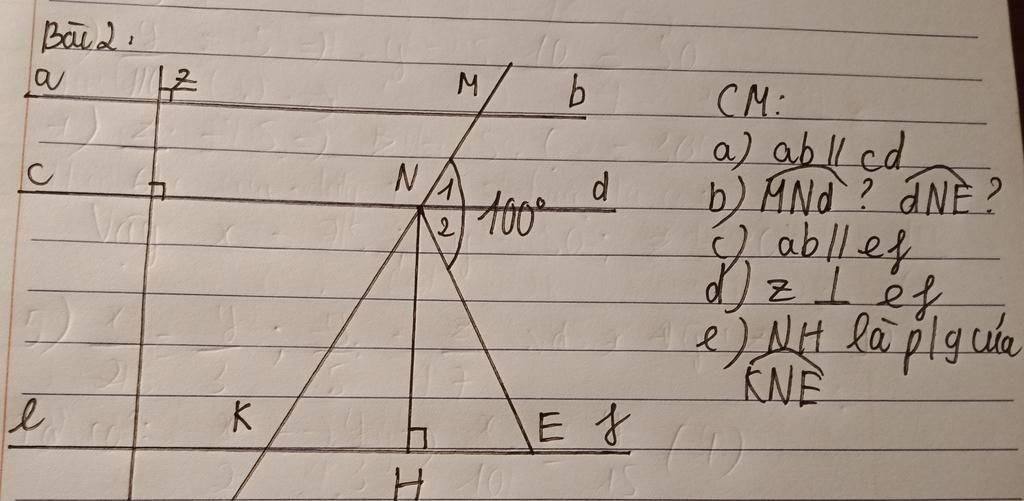 Bài 2.
a z M b
c N 1 d
2 100°
e K E f
H
CM:
a) ab // cd
b) MNd ? dNE ?
c) ab // ef
d) z ⊥ ef
e) NH là p/g của
KNE